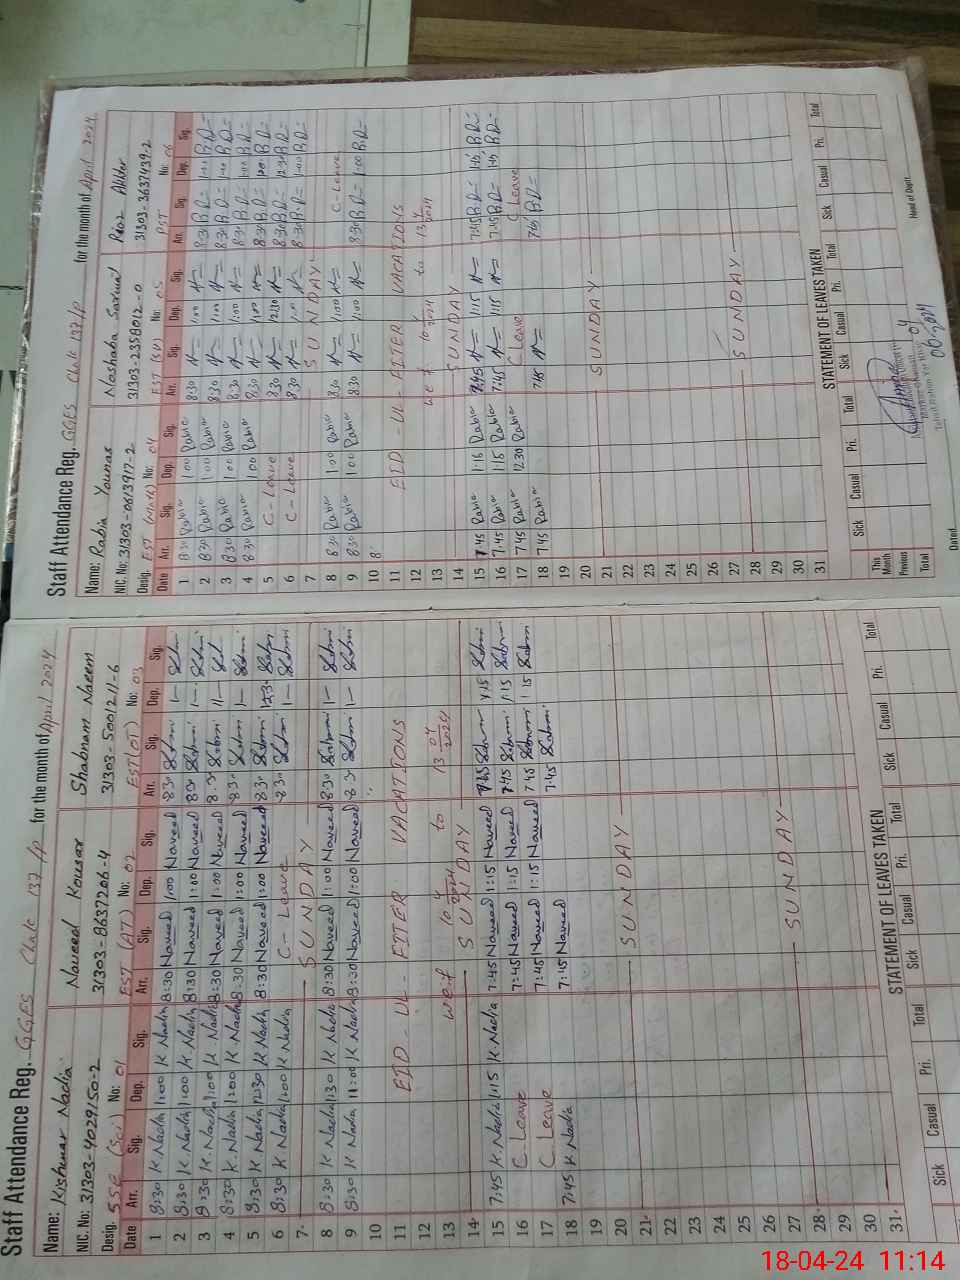 Staff Attendance Reg. GGES Chak 137/P for the month of April 2024
Name: Kishwar Nadia Naveed Kousar Shabnam Naeem
NIC. No: 31303-4029150-2 31303-8637206-4 31303-5001211-6
Desig. SSE (Sci) No: 01 EST (AT) No: 02 EST (DT) No: 03
Date Arr. Sig. Dep. Sig. Arr. Sig. Dep. Sig. Arr. Sig. Dep. Sig.
1 8:30 K Nadia 1:00 K Nadia 8:30 Naveed 1:00 Naveed 8:30 1-
2 8:30 K Nadia 1:00 K Nadia 8:30 Naveed 1:00 Naveed 8:30 1-
3 8:30 K Nadia 1:00 K Nadia 8:30 Naveed 1:00 Naveed 8:30
4 8:30 K Nadia 1:00 K Nadia 8:30 Naveed 1:00 Naveed 8:30 1-
5 8:30 K Nadia 12:30 K Nadia 8:30 Naveed 1:00 Naveed 8:30 12:30
6 8:30 K Nadia 1:00 K Nadia C-Leave 8:30 1-
7 SUNDAY
8 8:30 K Nadia 1:30 K Nadia 8:30 Naveed 1:00 Naveed 8:30 1-
9 8:30 K Nadia 11:00 K Nadia 8:30 Naveed 1:00 Naveed 8:30 1-
10
11 EID-UL-FITER VACATIONS
12
13 w.e.f 10 4 2024 to 13 04 2024
14 SUNDAY
15 7:45 K Nadia 1:15 K Nadia 7:45 Naveed 1:15 Naveed 7:45 1:15
16 C Leave 7:45 Naveed 1:15 Naveed 7:45 1:15
17 C Leave 7:45 Naveed 1:15 Naveed 7:45 1:15
18 7:45 K Nadia 7:45 Naveed 7:45
19
20 SUNDAY
21
22
23
24
25
26
27 SUNDAY
28
29
30
31
STATEMENT OF LEAVES TAKEN
Sick Casual Pri. Total Sick Casual Pri. Total Sick Casual Pri. Total
Staff Attendance Reg. GGES Chak 137/P for the month of April 2024
Name: Rabia Younas Noshaba
NIC. No: 31303-0613917-2 31303-2358012-0 31303-3637439-2
Desig. EST No: 04 EST (SV) No: 05 PST No: 06
Date Arr. Sig. Dep. Sig. Arr. Sig. Dep. Sig. Arr. Sig. Dep. Sig.
1 8:30 Rabia 1:00 Rabia 8:30 1:00 8:30 1:00
2 8:30 Rabia 1:00 Rabia 8:30 1:00 8:30 1:00
3 8:30 Rabia 1:00 Rabia 8:30 1:00 8:30 1:00
4 8:30 Rabia 1:00 Rabia 8:30 1:00 8:30 1:00
5 C-Leave 8:30 12:30 8:30 12:30
6 C-Leave 8:30 1:00 8:30 1:00
7 SUNDAY
8 8:30 Rabia 1:00 Rabia 8:30 1:00 C-Leave
9 8:30 Rabia 1:00 Rabia 8:30 1:00 8:30 1:00
10 8:
11 EID-UL-FITER VACATIONS
12
13 w.e.f 10 4 2024 to 13 4 2024
14 SUNDAY
15 7:45 Rabia 1:15 Rabia 7:45 1:15 7:45 1:15
16 7:45 Rabia 1:15 Rabia 7:45 1:15 7:45 1:15
17 7:45 Rabia 12:30 Rabia C Leave C Leave
18 7:45 Rabia 7:45 7:45
19
20 SUNDAY
21
22
23
24
25
26
27 SUNDAY
28
29
30
31
STATEMENT OF LEAVES TAKEN
Sick Casual Pri. Total Sick Casual Pri. Total Sick Casual Pri. Total
This Month
Previous
Total
Dated Head of Deptt.
18-04-24 11:14